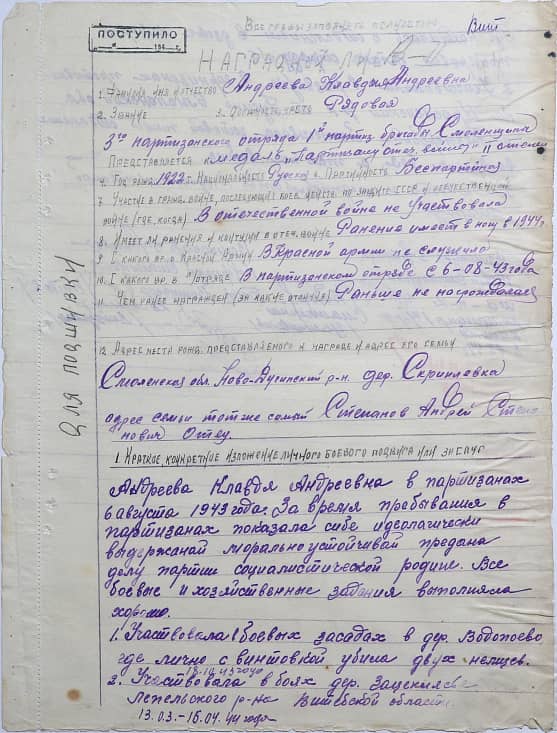 Все графы заполнять полностью
Вит
ПОСТУПИЛО
194 г.
НАГРАДНОЙ ЛИСТ
1. Фамилия имя и отчество Андреева Клавдия Андреевна
2. Звание 3. Должность, часть Рядовой
3го партизанского отряда 1й партиз. бригады Смоленщина
Представляется к медаль „Партизану отеч. войны" II степени
4. Год рожд. 1922 г. Национальность Русская 6. Партийность Беспартийная
7. Участие в гражд. войне, последующих боев. действ. по защите СССР и отечественной
войне (где, когда) В отечественной война не участвовала
8. Имеет ли ранения и контузии в отеч. войне Ранение имеет в ногу в 1944г
9. С какого вр. в Красной Армии В Красной армии не служила
10. С какого вр. в п/отряде В партизанском отряде с 6-08-43 года
11. Чем ранее награжден (за какие отличия) Раньше не награждалась
12. Адрес места рожд. представляемого к награде и адрес его семьи
Смоленская обл. Ново-Дугинский р-н. дер.
адрес семьи тот же самый Степанов Андрей Степа
нович Отец.
Для подшивки
1. Краткое, конкретное изложение личного боевого подвига или заслуг
Андреева Клавдя Андреевна в партизанах
6 августа 1943 года: За время пребывания в
партизанах показала себе идеологически
выдержанай морально устойчивай предана
делу партии социалистической родине. Все
боевые и хозяйственные задания выполняла
хорошо.
1. Участвовала в боевых засадах в дер. Водопоево
где лично с винтовкой убила двух немцев.
18-10-43 года
2. Участвовала в боях дер.
Лепельского р-на Витебской области
13.03.-16.04.44 года